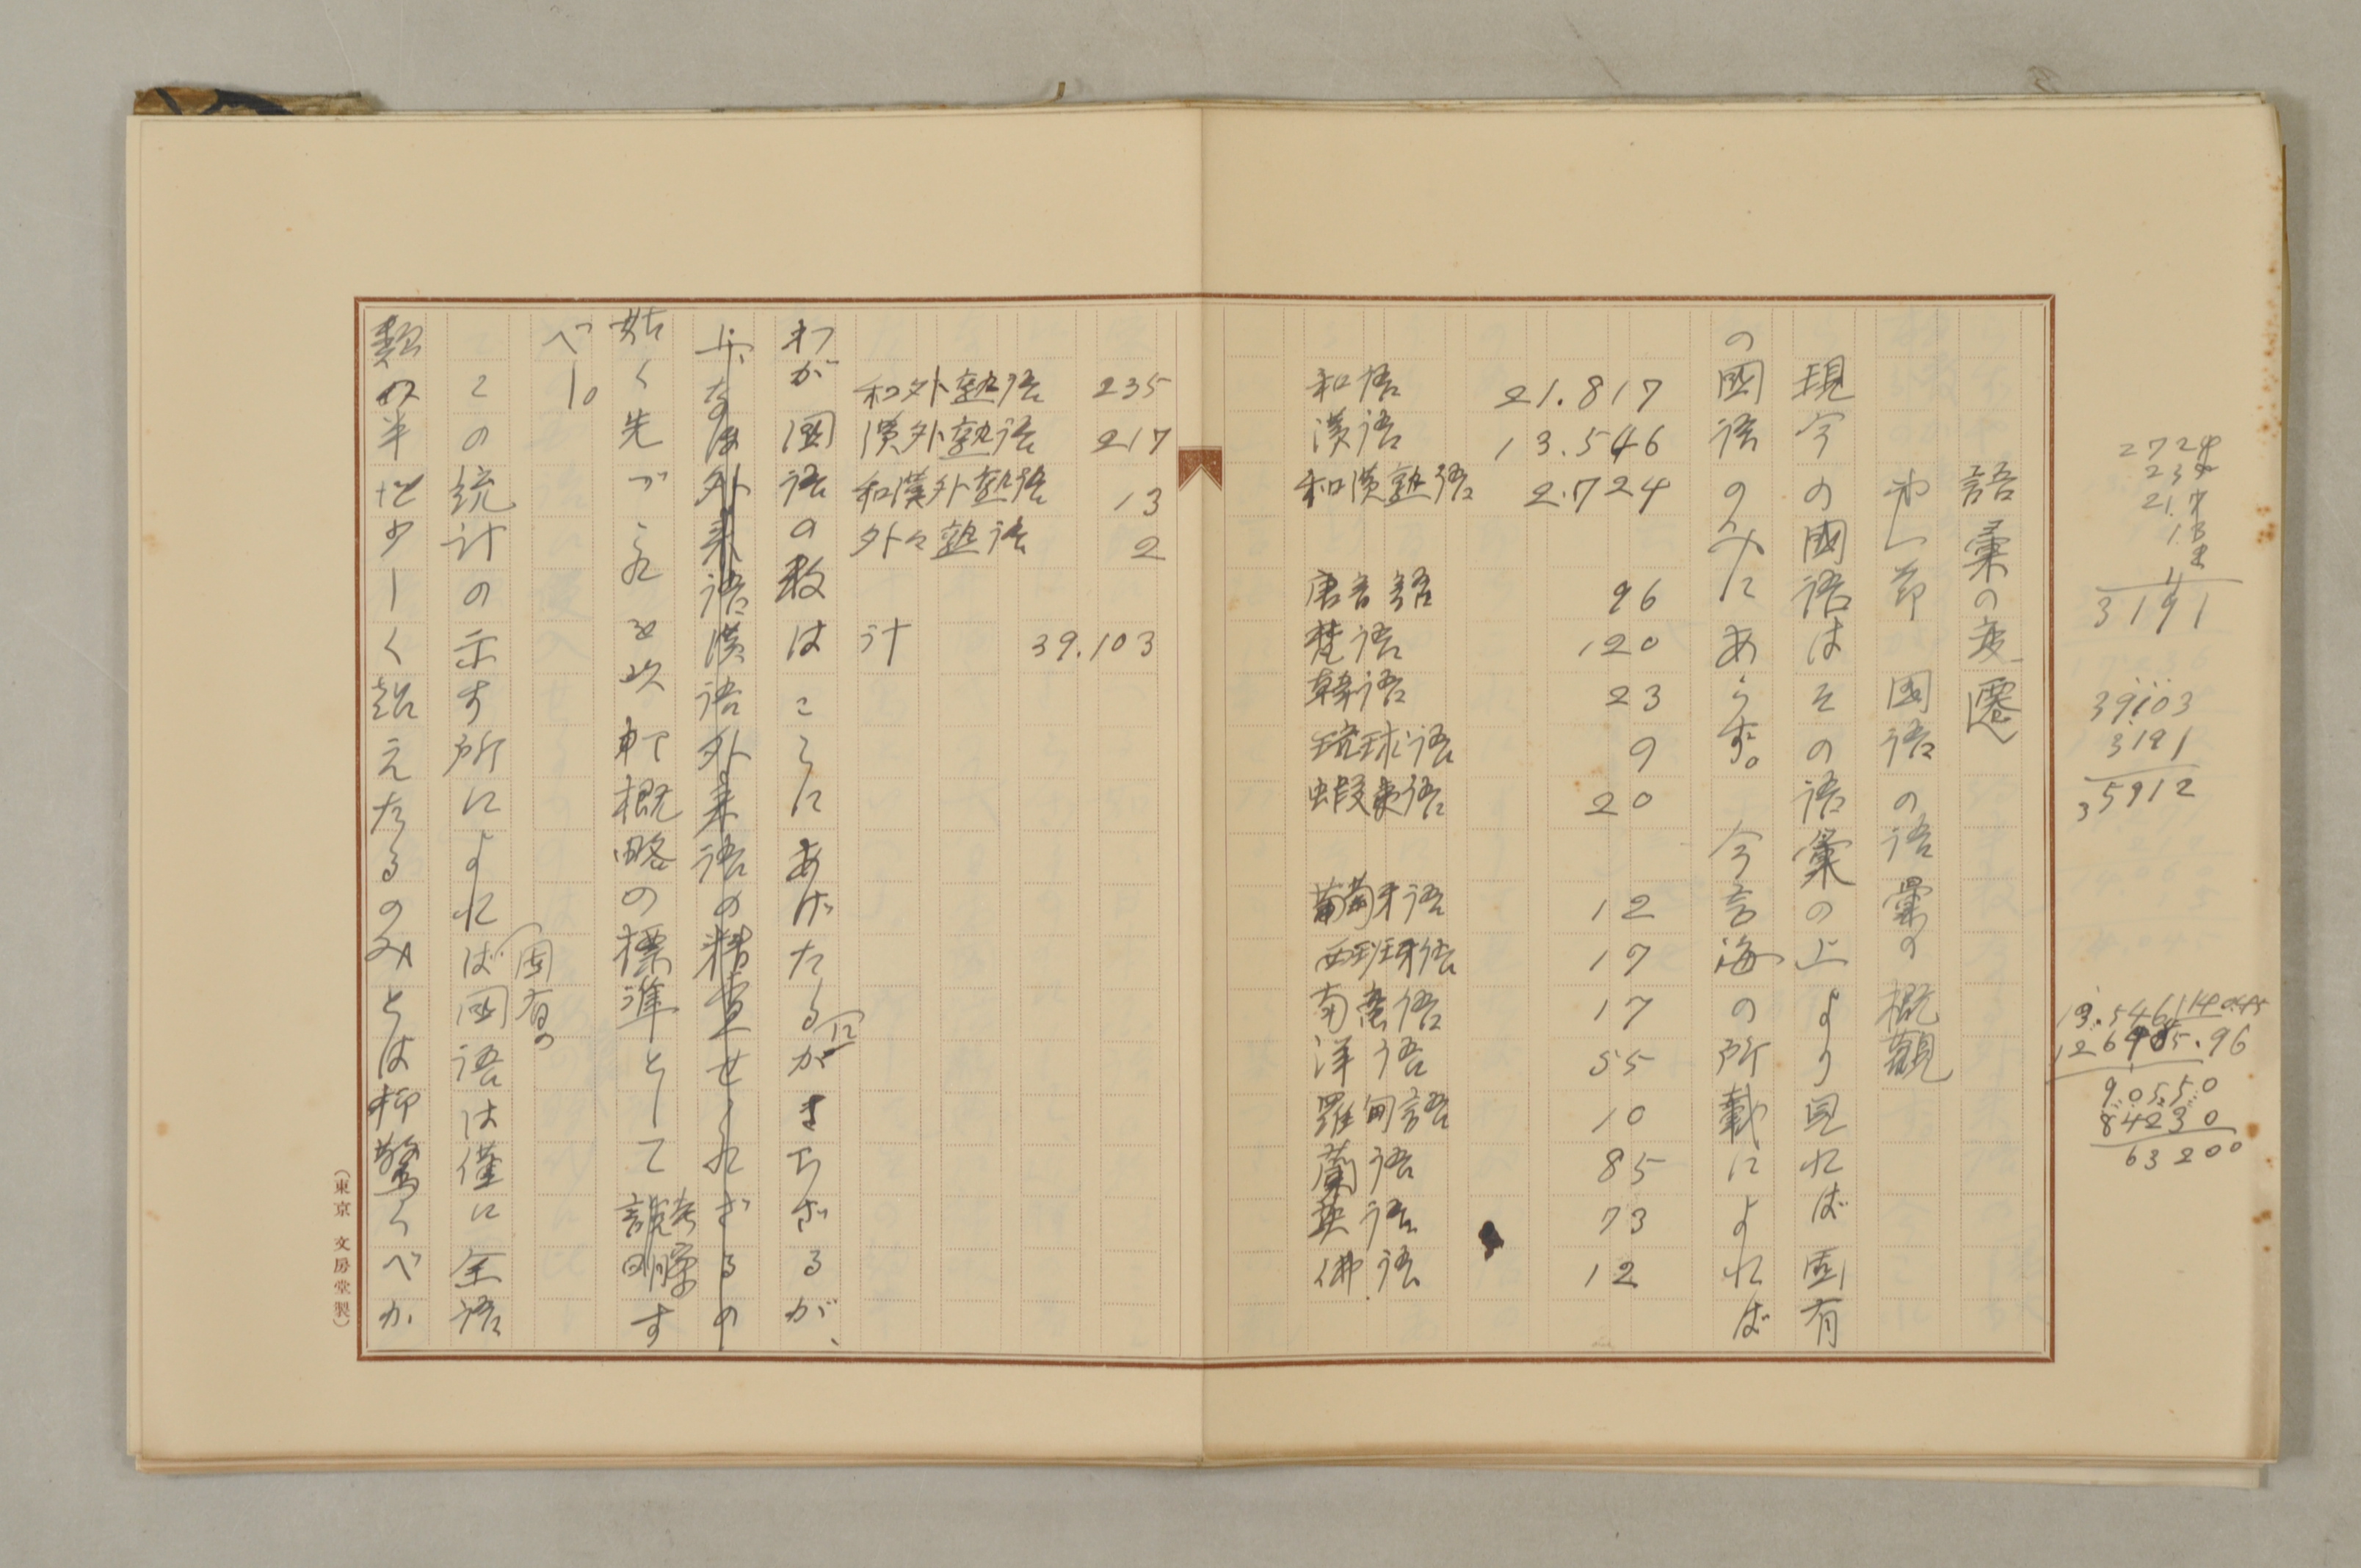 語彙の変遷
第一節 国語の語彙の概観
現今の國語はその語彙の上より見れば固有
の國語のみにあらず。今言海の所載によれば
和語 21.817
漢語 13.546
和漢熟語 2.724
唐音語 96
梵語 120
韓語 23
琉球語 9
蝦夷語 20
葡萄牙語 12
西班牙語 17
南蛮語 17
洋語 55
羅甸語 10
蘭語 85
英語 73
佛語 12
和外熟語 235
漢外熟語 217
和漢外熟語 13
外々熟語 2
計 39.103
わが国語の数はこゝにあげたるにかぎらざるが、
なほ外来語漢語外来語の精査せられざるの
姑く先づこれを以概略の標準として説明す
べし。
この統計の示す所によれば固有の國語は僅に全語
数の半を少しく超えたるのみとは驚くべか
(東京 文房堂製)
2724
235
217
13
2
3191
39103
3191
35912
90550
84230
63200